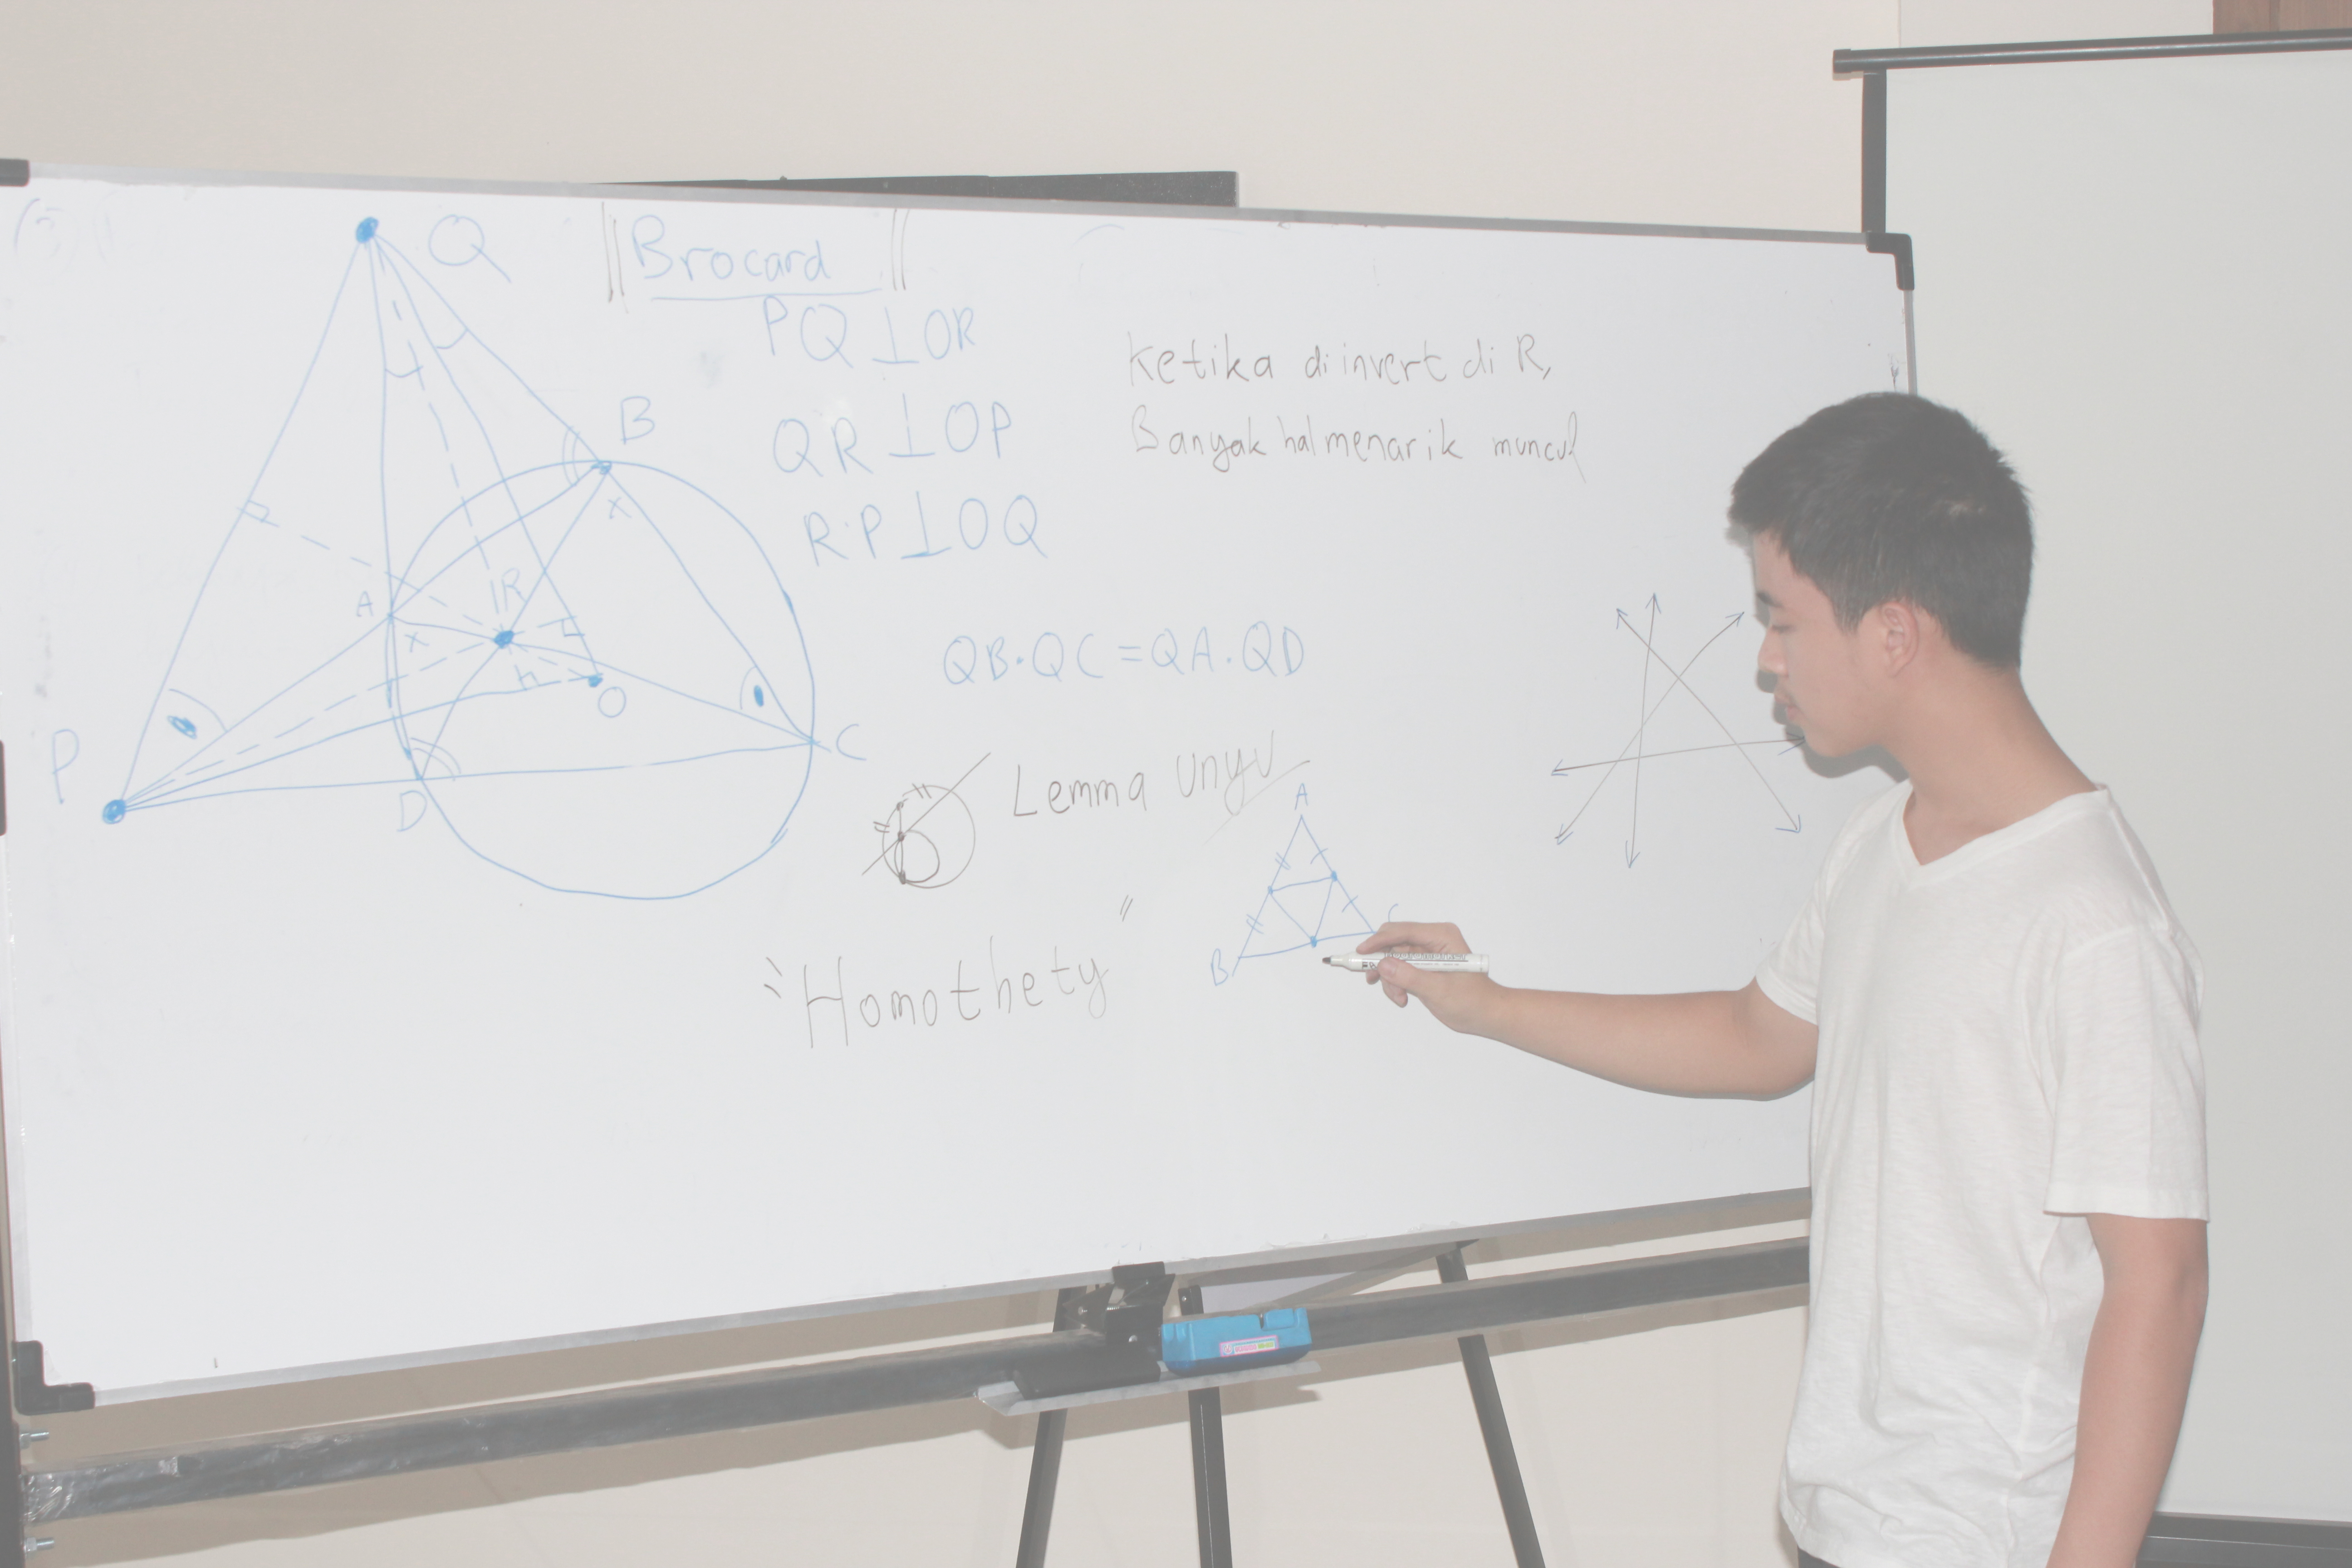 Q
Brocard
PQ⊥OR
QR⊥OP
R·P⊥OQ
B
x
A
x
R
O
P
D
C
Ketika diinvert di R,
Banyak hal menarik muncul
QB·QC=QA·QD
Lemma Unyu
A
B
C
"Homothety"